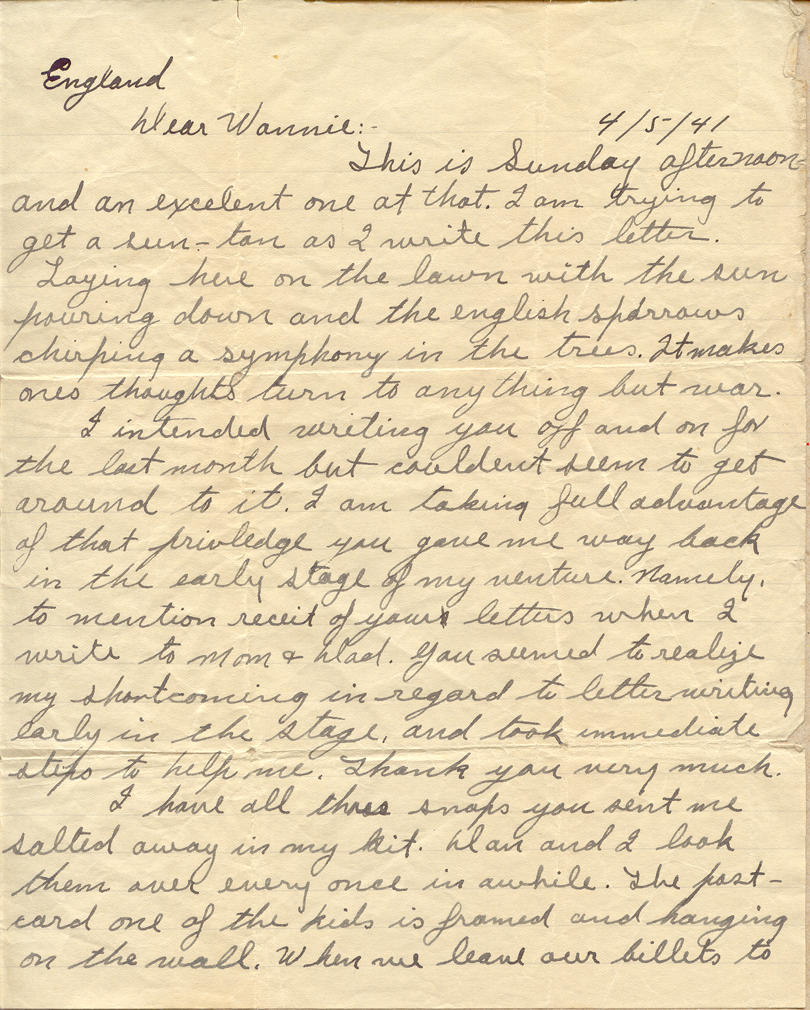 England
Dear Wannie:-
4/5/41
This is Sunday afternoon-
and an excelent one at that. I am trying to
get a sun-tan as I write this letter.
Laying here on the lawn with the sun
pouring down and the english sparrows
chirping a symphony in the trees. It makes
ones thoughts turn to anything but war.
I intended writing you off and on for
the last month but couldent seem to get
around to it. I am taking full advantage
of that privledge you gave me way back
in the early stage of my venture. Namely,
to mention receit of your letters when I
write to Mom & Dad. You seemed to realize
my shortcoming in regard to letter writing
early in the stage, and took immediate
steps to help me. Thank you very much.
I have all three snaps you sent me
salted away in my kit. Dan and I look
them over every once in awhile. The post-
card one of the kids is framed and hanging
on the wall. When we leave our billets to